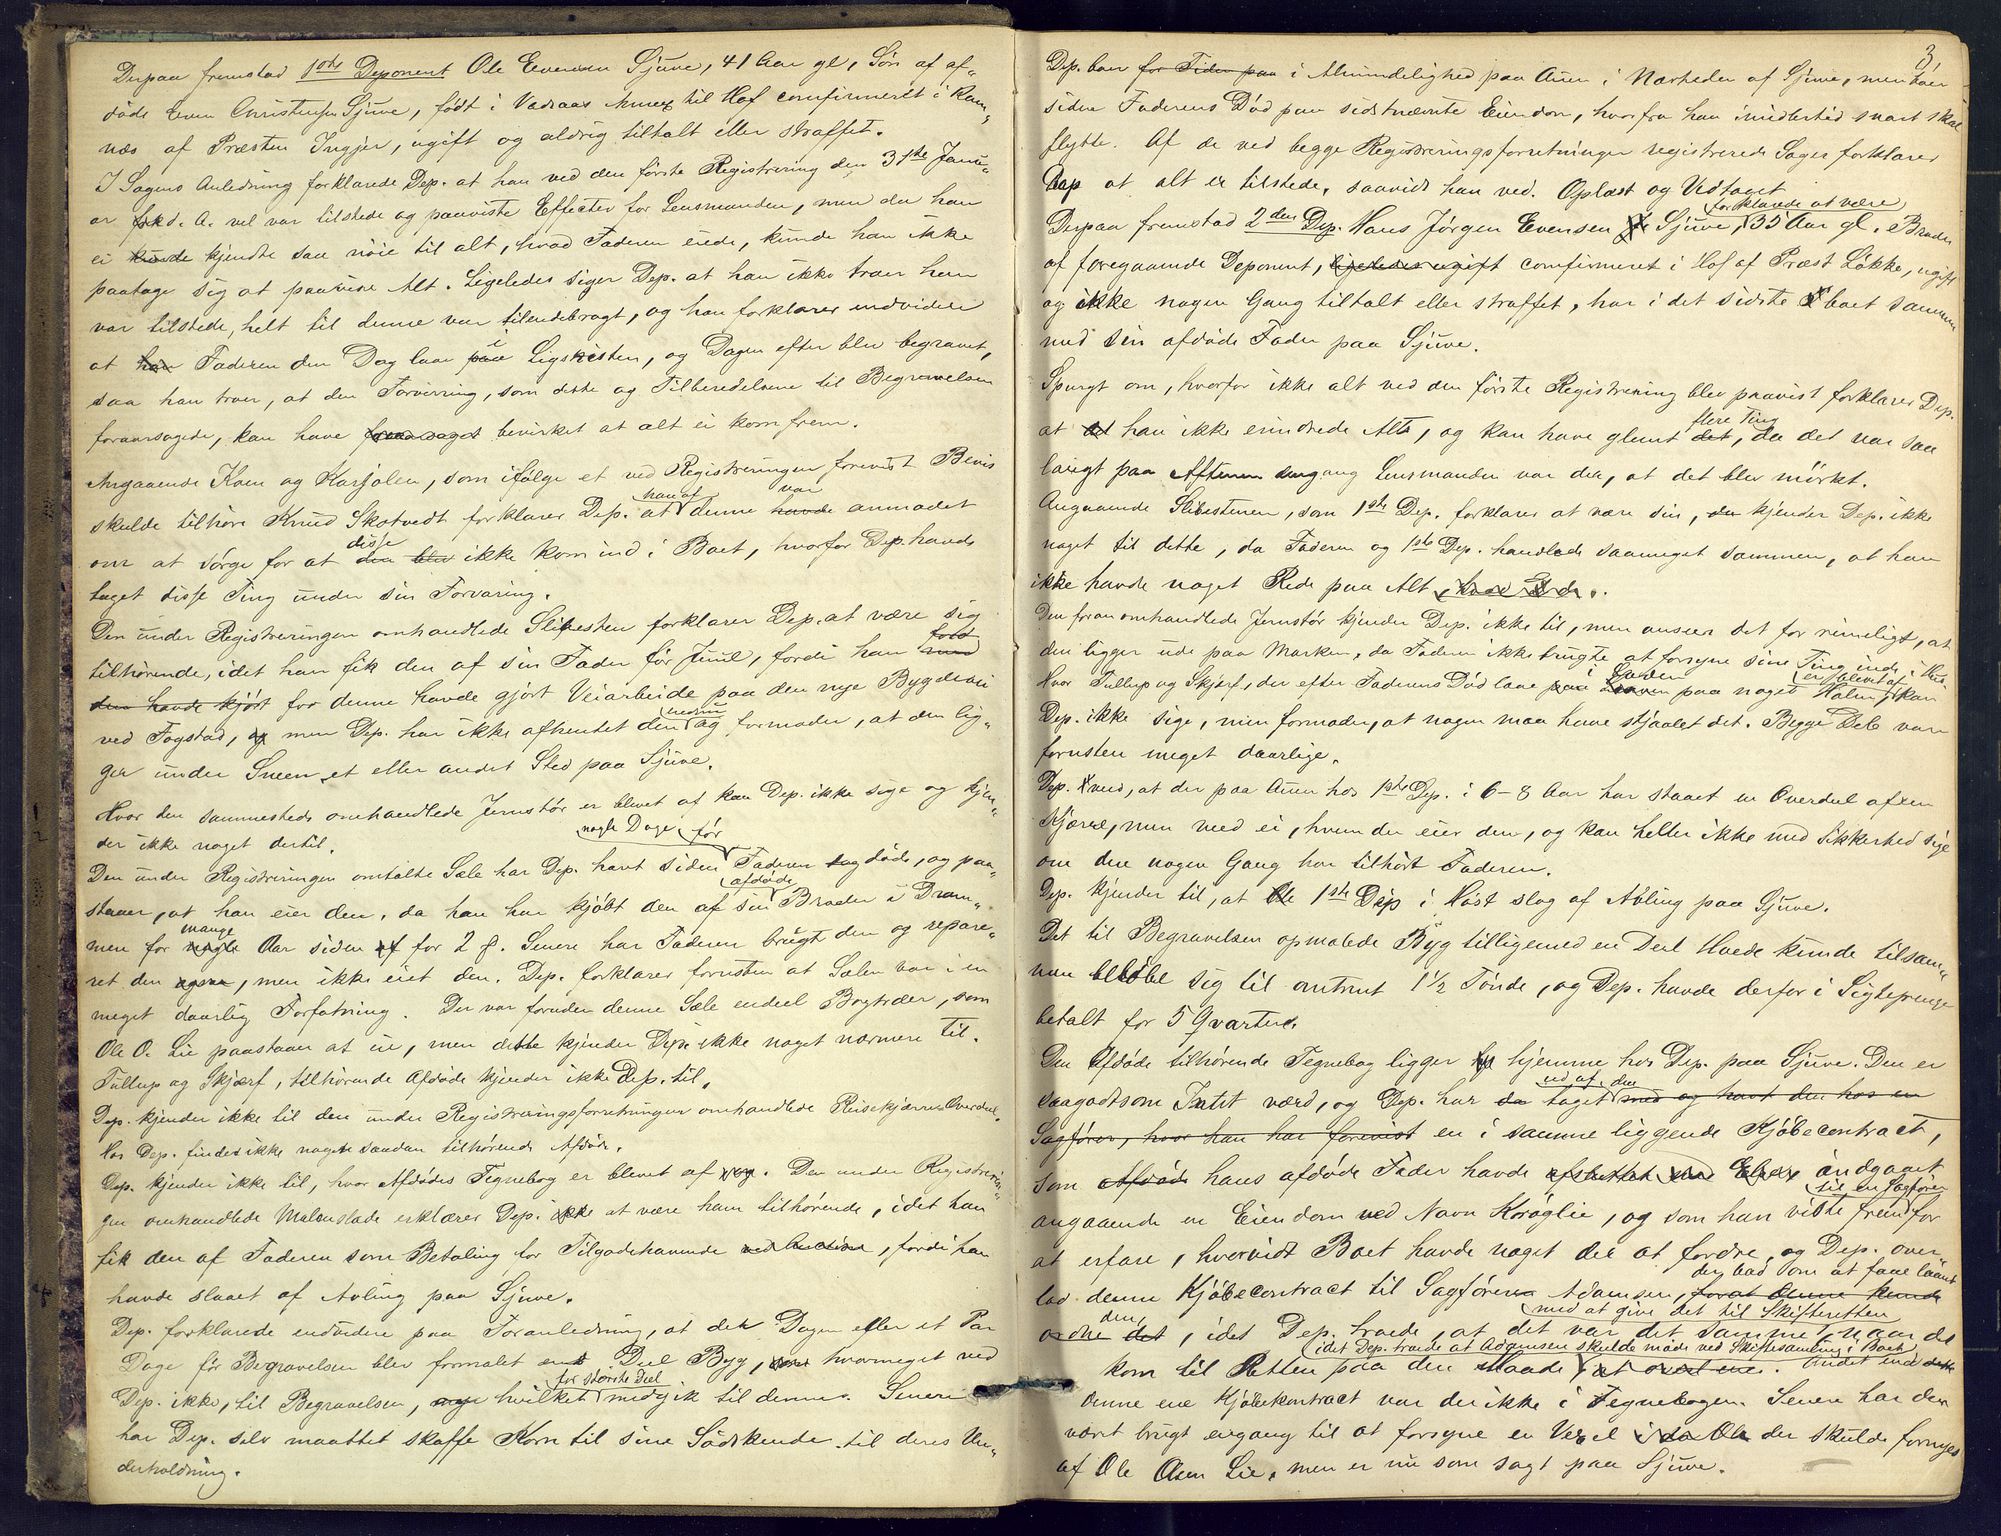 Derpaa fremstod 1ste Deponent Ole Evensen Sjuve, 41 Aar gl, Søn af af-
døde Even Christensen Sjuve, født i Vadraas Annex til Hof confirmeret i Ram-
næs af Præsten Ingier, ugift og aldrig tiltalt eller straffet.
I Sagens Anledning forklarede Dep. at han ved den første Registrering den 31te Janu-
ar d. A. vel var tilstede og paaviste Effecter for Lensmanden, men da han
ei kunde kjendte saa nøie til alt, hvad Faderen eiede, kunde han ikke
paatage sig at paavise Alt. Ligeledes siger Dep. at han ikke troer han
var tilstede, helt til denne var tilendebragt, og han forklarer endvidere
at han Faderen den Dag laae paa i Ligkisten, og Dagen efter blev begravet,
saa han troer, at den Forvirring, som dette og Tilberedelserne til Begravelsen
foraarsagede, kan have foraarsaget bevirket at alt ei kom frem.
Angaaende Koen og Karjolen, som ifølge et ved Registreringen forevist Bevis
skulde tilhøre Knud Skotvedt forklarer Dep. at han af denne havde var anmodet
om at sørge for at den blev disse ikke kom ind i Boet, hvorfor Dep. havde
taget disse Ting under sin Forvaring.
Den under Registreringen omhandlede Slibesten forklarer Dep. at være sig
tilhørende, idet han fik den af sin Fader før Juul, fordi han
den havde kjørt for denne havde gjort Veiarbeide paa den nye Bygdevei
ved Fogstad, og men Dep. har ikke afhentet den endnu og formoder, at den lig-
ger under Sneen et eller andet Sted paa Sjuve.
Hvor den sammesteds omhandlede Jernstør er blevet af kan Dep. ikke sige og kjen-
der ikke noget dertil.
Den under Registreringen omtalte Sæle har Dep. havt siden nogle Dage før Faderen døde, og paa-
staaer, at han eier den, da han har kjøbt den af sin afdøde Broder i Dram-
men for nogle mange Aar siden for 2 . Senere har Faderen brugt den og repare-
ret den ogsaa, men ikke eiet den. Dep. forklarer forresten at Sælen var i en
meget daarlig Forfatning. Der var foruden denne Sæle endeel Bogtræer, som
Ole O. Lie paastaaer at eie, men dette kjender Dep. ikke noget nærmere til.
Tullup og Skjærf, tilhørende Afdøde kjender ikke Dep. til.
Dep. kjender ikke til den under Registreringsforretningen omhandlede Reisekjærres Overdeel.
Hos Dep. findes ikke noget saadan tilhørende Afdøde.
Dep. kjender ikke til, hvor Afdødes Tegnebog er blevet af. Den under Registrerin-
gen omhandlede Malenslade erklærer Dep. ikke at være ham tilhørende, idet han
fik den af Faderen som Betaling for Tilgodehavende ved Auction, fordi han
havde slaaet af Avling paa Sjuve.
Dep. forklarede endvidere paa Foranledning, at der Dagen eller et Par
Dage før Begravelsen blev formalet en Deel Byg, hvormeget ved
Dep. ikke, til Begravelsen, hvilket for største Deel medgik til denne. Senere
har Dep. selv maattet skaffe Korn til sine Sødskende til deres Un-
derholdning.
3
Dep. boer for Tiden paa i Almindelighed paa Auen i Nærheden af Sjuve, men boer
siden Faderens Død paa sidstnævnte Eiendom, hvorfra han imidlertid snart skal
flytte. Af de ved begge Registreringsforretninger registrerede Sager forklarer
Dep at alt er tilstede, saavidt han ved. Oplæst og Vedtaget
Derpaa fremstod 2den Dep. Hans Jørgen Evensen Sjuve, forklarede at være 35 Aar gl. Broder
af foregaaende Deponent, ligeledes ugift confirmeret i Hof af Præst Løkke, ugift
og ikke nogen Gang tiltalt eller straffet, har i det sidste boet sammen
med sin afdøde Fader paa Sjuve.
Spurgt om, hvorfor ikke alt ved den første Registrering blev paavist forklarer Dep.
at han ikke erindrede Alt, og kan have glemt det, flere Ting da det var saa
langt paa Aftenen engang Lensmanden var der, at det blev mørkt.
Angaaende Slibestenen, som 1ste Dep. forklarer at være sin, kjender Dep. ikke
noget til dette, da Faderen og 1ste Dep. handlede saameget sammen, at han
ikke havde noget Rede paa Alt.
Den foran omhandlede Jernstør kjender Dep. ikke til, men anseer det for rimeligt, at
den ligger ude paa Marken, da Faderen ikke brugte at forsyne sine Ting inde i Hus
Hvor Tullup og Skjærf, der efter Faderens Død laae paa Laaven paa noget Halm, er blevet af kan
Dep. ikke sige, men formoder, at nogen maa have stjaalet det. Begge Dele vare
forresten meget daarlige.
Dep. veed, at der paa Auen hos 1ste Dep. i 6-8 Aar har staaet en Overdeel af en
Kjærre, men veed ei, hvem der eier den, og kan heller ikke med Sikkerhed sige
om den nogen Gang har tilhørt Faderen.
Dep. kjender til, at 1ste Dep i Høst slog af Avling paa Sjuve.
Det til Begravelsen opmalede Byg tilligemed en Deel Hvede kunde tilsam-
men beløbe sig til omtrent 1½ Tønde, og Dep. havde derfor i Sigtepenge
betalt for 5 Qvarter.
Den Afdøde tilhørende Tegnebog ligger hjemme hos Dep. paa Sjuve. Den er
saagodtsom Intet værd, og Dep. har da taget ud af den med og havt den hos en
Sagfører, hvor han har forevist en i samme liggende Kjøbecontract,
som Afdøde hans afdøde Fader havde afsluttet indgaaet
angaaende en Eiendom ved Navn Koraglie, og som han viste frem til en Sagfører for
at erfare, hvorvidt Boet havde noget der at fordre, og Dep. over-
lod denne Kjøbecontract til Sagfører Adamsen, der bad om at faae laant forat denne kunde
ordne det den, idet Dep. troede, at det var det samme, med at give det til Skifteretten naar det
kom til Retten paa den Maade idet Dep. troede at Adamsen skulde møde ved Skiftesamling i Boet. Andet end dette
denne ene Kjøbekontract var der ikke i Tegnebogen. Senere har den
været brugt engang til at forsyne en Vexel i da Ole der skulde fornyes
af Ole Olsen Lie, men er nu som sagt paa Sjuve.